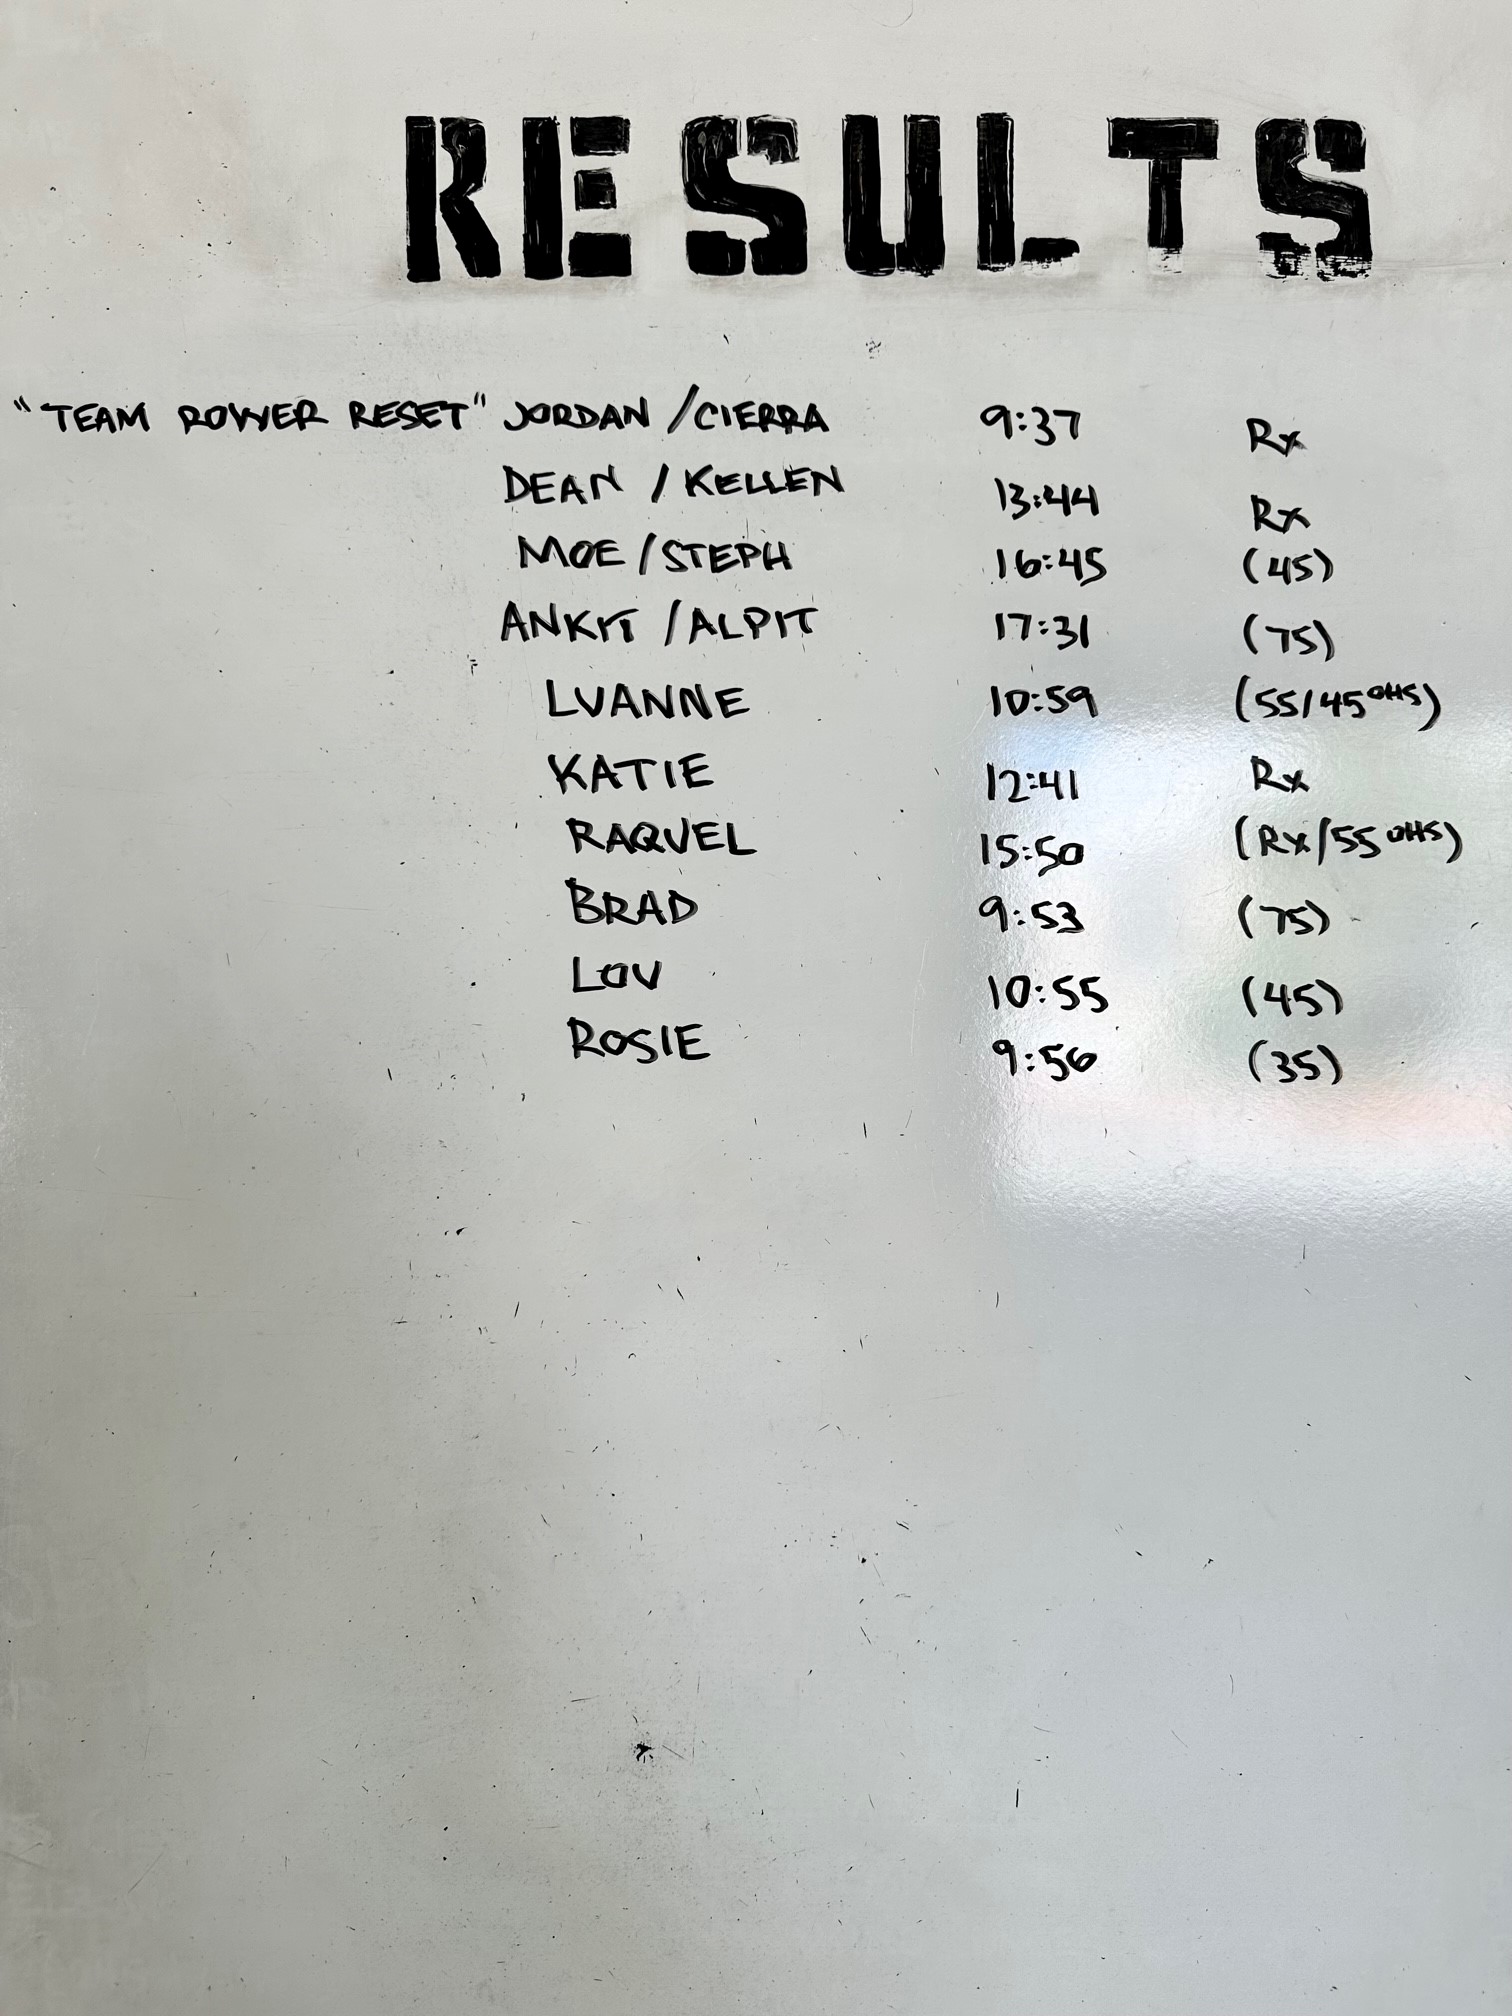 RESULTS
"TEAM ROWER RESET" JORDAN / CIERRA 9:37 Rx
DEAN / KELLEN 13:44 Rx
MOE / STEPH 16:45 (45)
ANKIT / ALPIT 17:31 (75)
LUANNE 10:59 (55/45 OHS)
KATIE 12:41 Rx
RAQUEL 15:50 (Rx/55 OHS)
BRAD 9:53 (75)
LOU 10:55 (45)
ROSIE 9:56 (35)